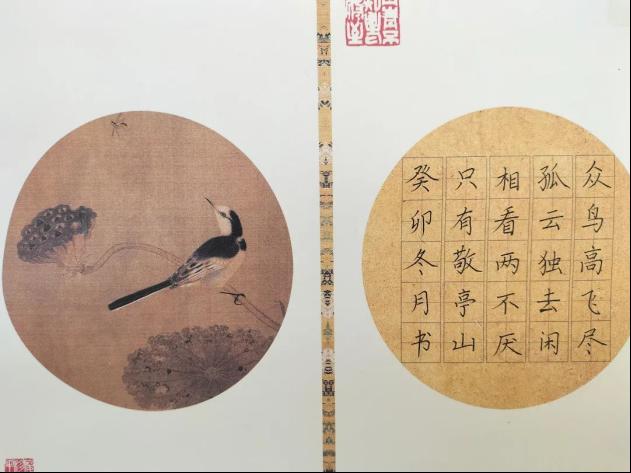 众鸟高飞尽
孤云独去闲
相看两不厌
只有敬亭山
癸卯冬月书